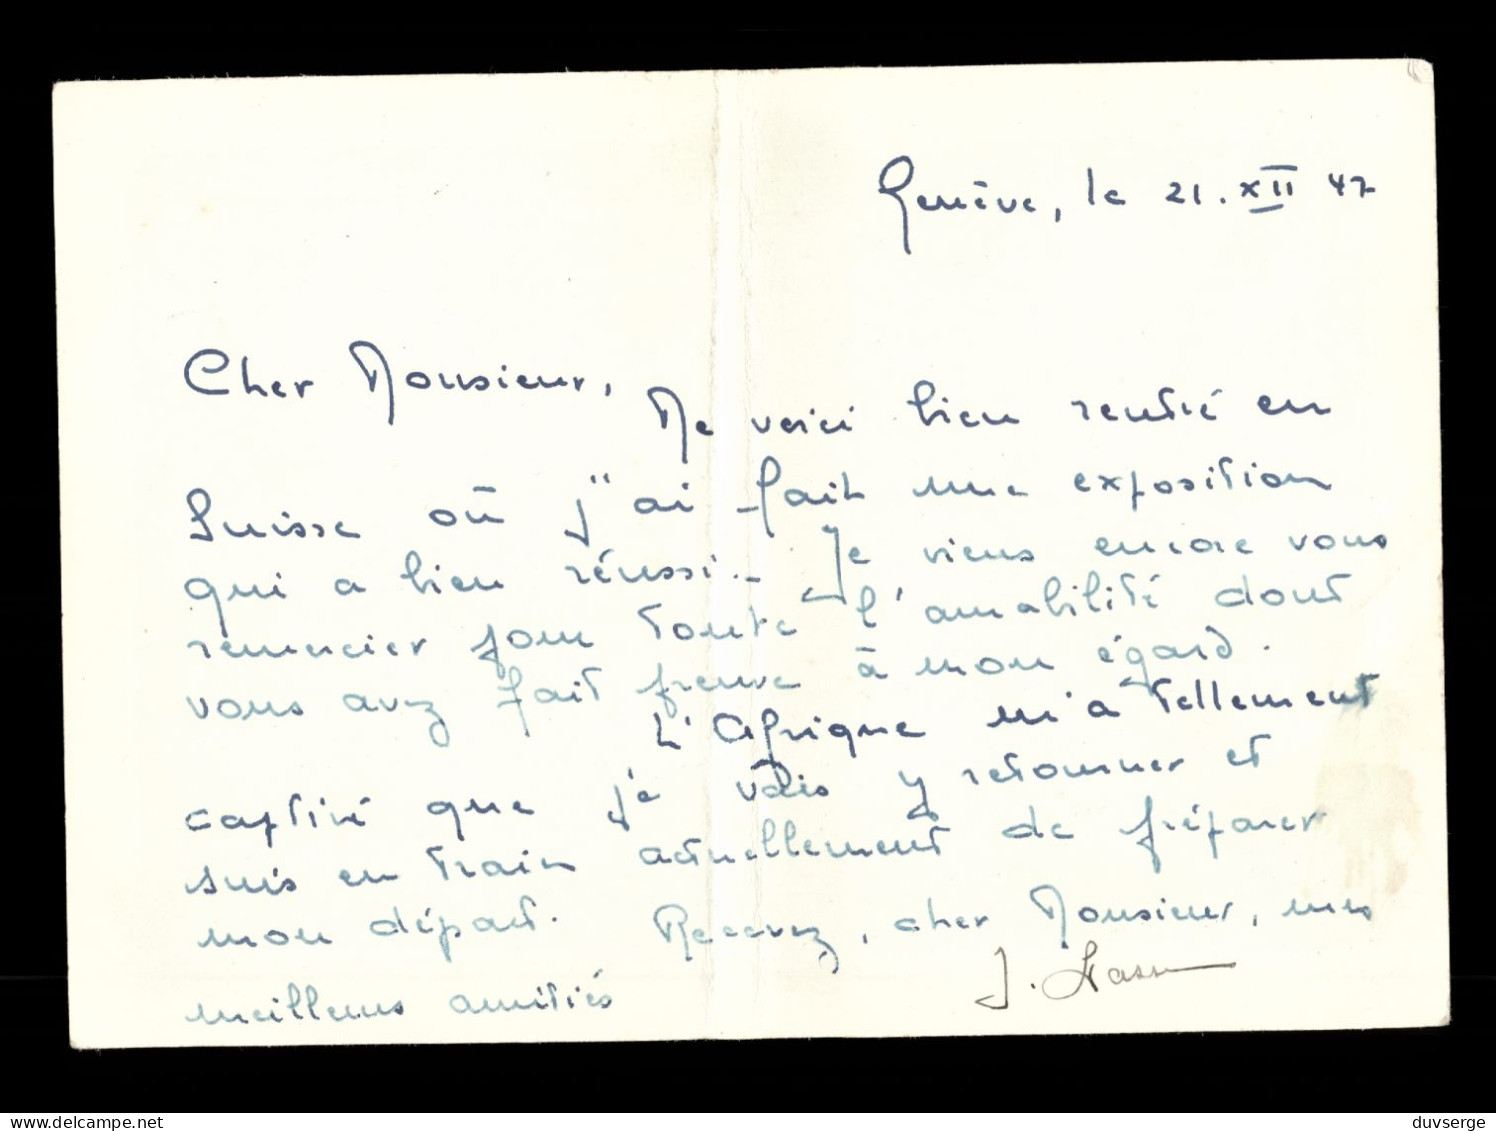 Genève, le 21. XII 47
Cher Monsieur,
Me voici bien rentré en
Suisse où j'ai fait une exposition
qui a bien réussi. Je viens encore vous
remercier pour toute l'amabilité dont
vous avez fait preuve à mon égard.
L'Afrique m'a tellement
captivé que je vais y retourner et
suis en train actuellement de préparer
mon départ. Recevez, cher Monsieur, mes
meilleurs amitiés
J.
delcampe.net
duvserge